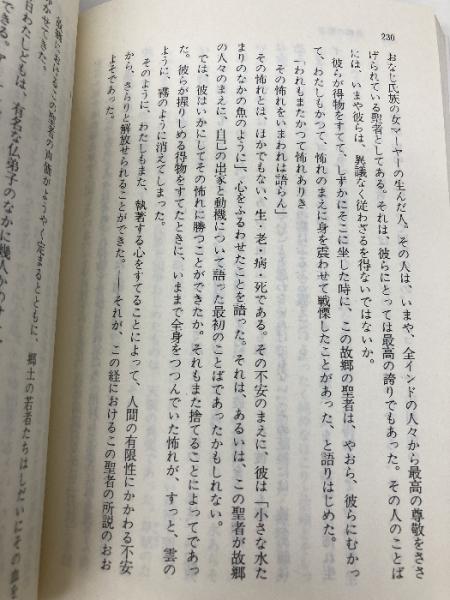 230
おなじ氏族の女マーヤーの生んだ人。その人は、いまや、全インドの人々から最高の尊敬をささ
げられている聖者としてある。それは、彼らにとっては最高の誇りでもあった。その人のことば
には、いまや彼らは、異議なく従わざるを得ないではないか。
彼らが得物をすてて、しずかにそこに坐した時に、この故郷の聖者は、やおら、彼らにむかっ
て、わたしもかつて、怖れのまえに身を震わせて戦慄したことがあった、と語りはじめた。
「われもまたかつて怖れありき
その怖れをいまわれは語らん」
その怖れとは、ほかでもない、生・老・病・死である。その不安のまえに、彼は「小さな水た
まりのなかの魚のように」、心をふるわせたことを語った。それは、あるいは、この聖者が故郷
の人々のまえに、自己の出家と動機について語った最初のことばであったかもしれない。
では、彼はいかにしてその怖れに勝つことができたか。それもまた捨てることによってであっ
た。彼らが握りしめる得物をすてたときに、いままで全身をつつんでいた怖れが、すっと、雲の
ように、霧のように消えてしまった。
そのように、わたしもまた、執著する心をすてることによって、人間の有限性にかかわる不安
から、さらりと解放せられることができた。――それが、この経におけるこの聖者の所説のおお
よそであった。
故郷におけるこの聖者の声価がようやく定まるとともに、郷土の若者たちはしだいにその
かせてきた。
日わたしどもは、有名な仏弟子のなかに幾人かの
できる。